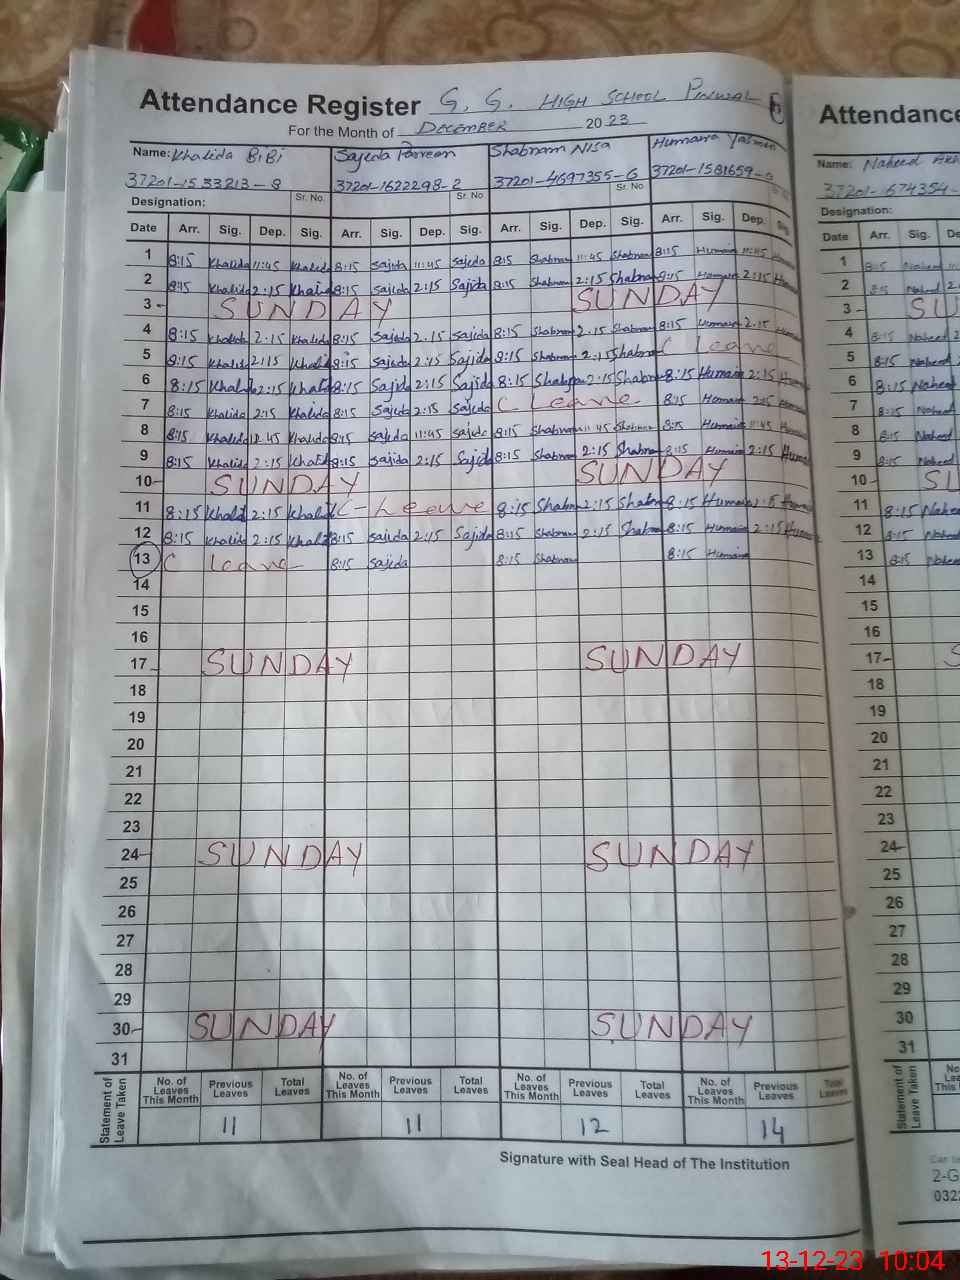 Attendance Register G. G. HIGH SCHOOL PINWAL
For the Month of DECEMBER 2023
Name: Khalida BiBi Sajeda Parveen Shabnam NISA Humaira Yasmin
37201-1533213-8 37201-1622298-2 37201-4697355-6 37201-1581659-
Designation: Sr. No. Sr. No. Sr. No.
Date Arr. Sig. Dep. Sig. Arr. Sig. Dep. Sig. Arr. Sig. Dep. Sig. Arr. Sig. Dep. Sig.
1 8:15 Khalida 11:45 Khalida 8:15 Sajida 11:45 Sajeda 8:15 Shabnam 11:45 Shabnam 8:15 Humaira 11:45 Humaira
2 8:15 Khalida 2:15 Khalida 8:15 Sajida 2:15 Sajida 8:15 Shabnam 2:15 Shabnam 8:15 Humaira 2:15 Huma
3 - SUNDAY SUNDAY
4 8:15 Khalida 2:15 Khalida 8:15 Sajeda 2:15 Sajida 8:15 Shabnam 2:15 Shabnam 8:15 Humaira 2:15
5 8:15 Khalid 2:15 Khalid 8:15 Sajeda 2:15 Sajida 8:15 Shabnam 2:15 Shabnam C Leave
6 8:15 Khalid 2:15 Khalid 8:15 Sajida 2:15 Sajida 8:15 Shabnam 2:15 Shabnam 8:15 Humaira 2:15 Huma
7 8:15 Khalida 2:15 Khalida 8:15 Sajeda 2:15 Sajeda C Leave 8:15 Humaira 2:15 Humaira
8 8:15 Khalida 11:45 Khalida 8:15 Sajeda 11:45 Sajida 8:15 Shabnam 11:45 Shabnam 8:15 Humaira 11:45 Humaira
9 8:15 Khalida 2:15 Khalid 8:15 Sajida 2:15 Sajid 8:15 Shabnam 2:15 Shabnam 8:15 Humaira 2:15 Huma
10- SUNDAY SUNDAY
11 8:15 Khalid 2:15 Khalid C-Leave 8:15 Shabnam 2:15 Shabnam 8:15 Humaira 2:15 Humaira
12 8:15 Khalida 2:15 Khalid 8:15 Sajida 2:15 Sajida 8:15 Shabnam 2:15 Shabnam 8:15 Humaira 2:15 Huma
13 C Leave 8:15 Sajeda 8:15 Shabnam 8:15 Humaira
14
15
16
17- SUNDAY SUNDAY
18
19
20
21
22
23
24- SUNDAY SUNDAY
25
26
27
28
29
30- SUNDAY SUNDAY
31
Statement of Leave Taken
No. of Leaves This Month Previous Leaves Total Leaves No. of Leaves This Month Previous Leaves Total Leaves No. of Leaves This Month Previous Leaves Total Leaves No. of Leaves This Month Previous Leaves Total Leaves
11 11 12 14
Signature with Seal Head of The Institution
Attendance
Name: Naheed
37201-1674354-
Designation:
Date Arr. Sig. De
1 8:15 Naheed 11:
2 8:15 Naheed 2
3 - SU
4 8:15 Naheed
5 8:15 Naheed
6 8:15 Naheed
7 8:15 Naheed
8 8:15 Naheed
9 8:15 Naheed
10 - SU
11 8:15 Naheed
12 8:15 Naheed
13 8:15 Naheed
14
15
16
17- S
18
19
20
21
22
23
24-
25
26
27
28
29
30
31
Statement of Leave Taken
2-G
0322
13-12-23 10:04